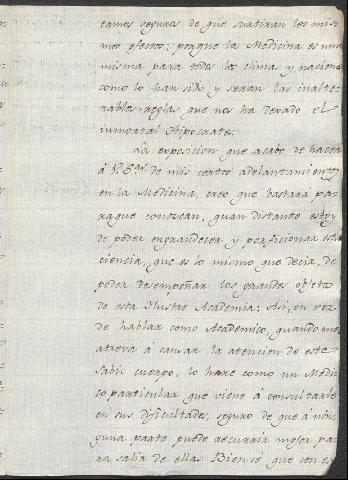 tamos seguros de que surtiran los mis-
mos efectos: porque la Medicina es una
misma para todos los climas y naciones
como lo han sido y seran las inalte-
rables reglas que nos ha dexado el
inmortal Hipocrates.
La exposicion que acabo de hacer
á V.S.as de mis cortos adelantamientos
en la Medicina, creo que bastará pa-
ra que conozcan, quan distante estoy
de poder engrandecer y perficionar esta
ciencia, que es lo mismo que decir, de
poder desempeñar los grandes objetos
de esta Ilustre Academia: Asi, en vez
de hablar como Academico, quando me
atreva á cansar la atencion de este
sabio cuerpo, lo hare como un Medi-
co particular que viene á consultarle
en sus dificultades, seguro de que á nin-
guna parte puede recurrir mejor pa-
ra salir de ellas. Bien sé que con es-